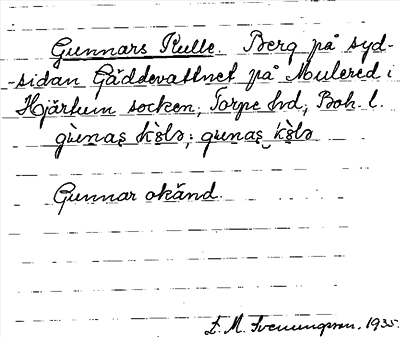 Gunnars Kulle. Berg på syd-
-sidan Gäddevattnet på Mulered i
Hjärtum socken, Torpe hd, Boh. l.
gùnaş kŏ̀lə; gunaş kŏ̀lə
Gunnar okänd.
E. M. Svenungsson. 1935.